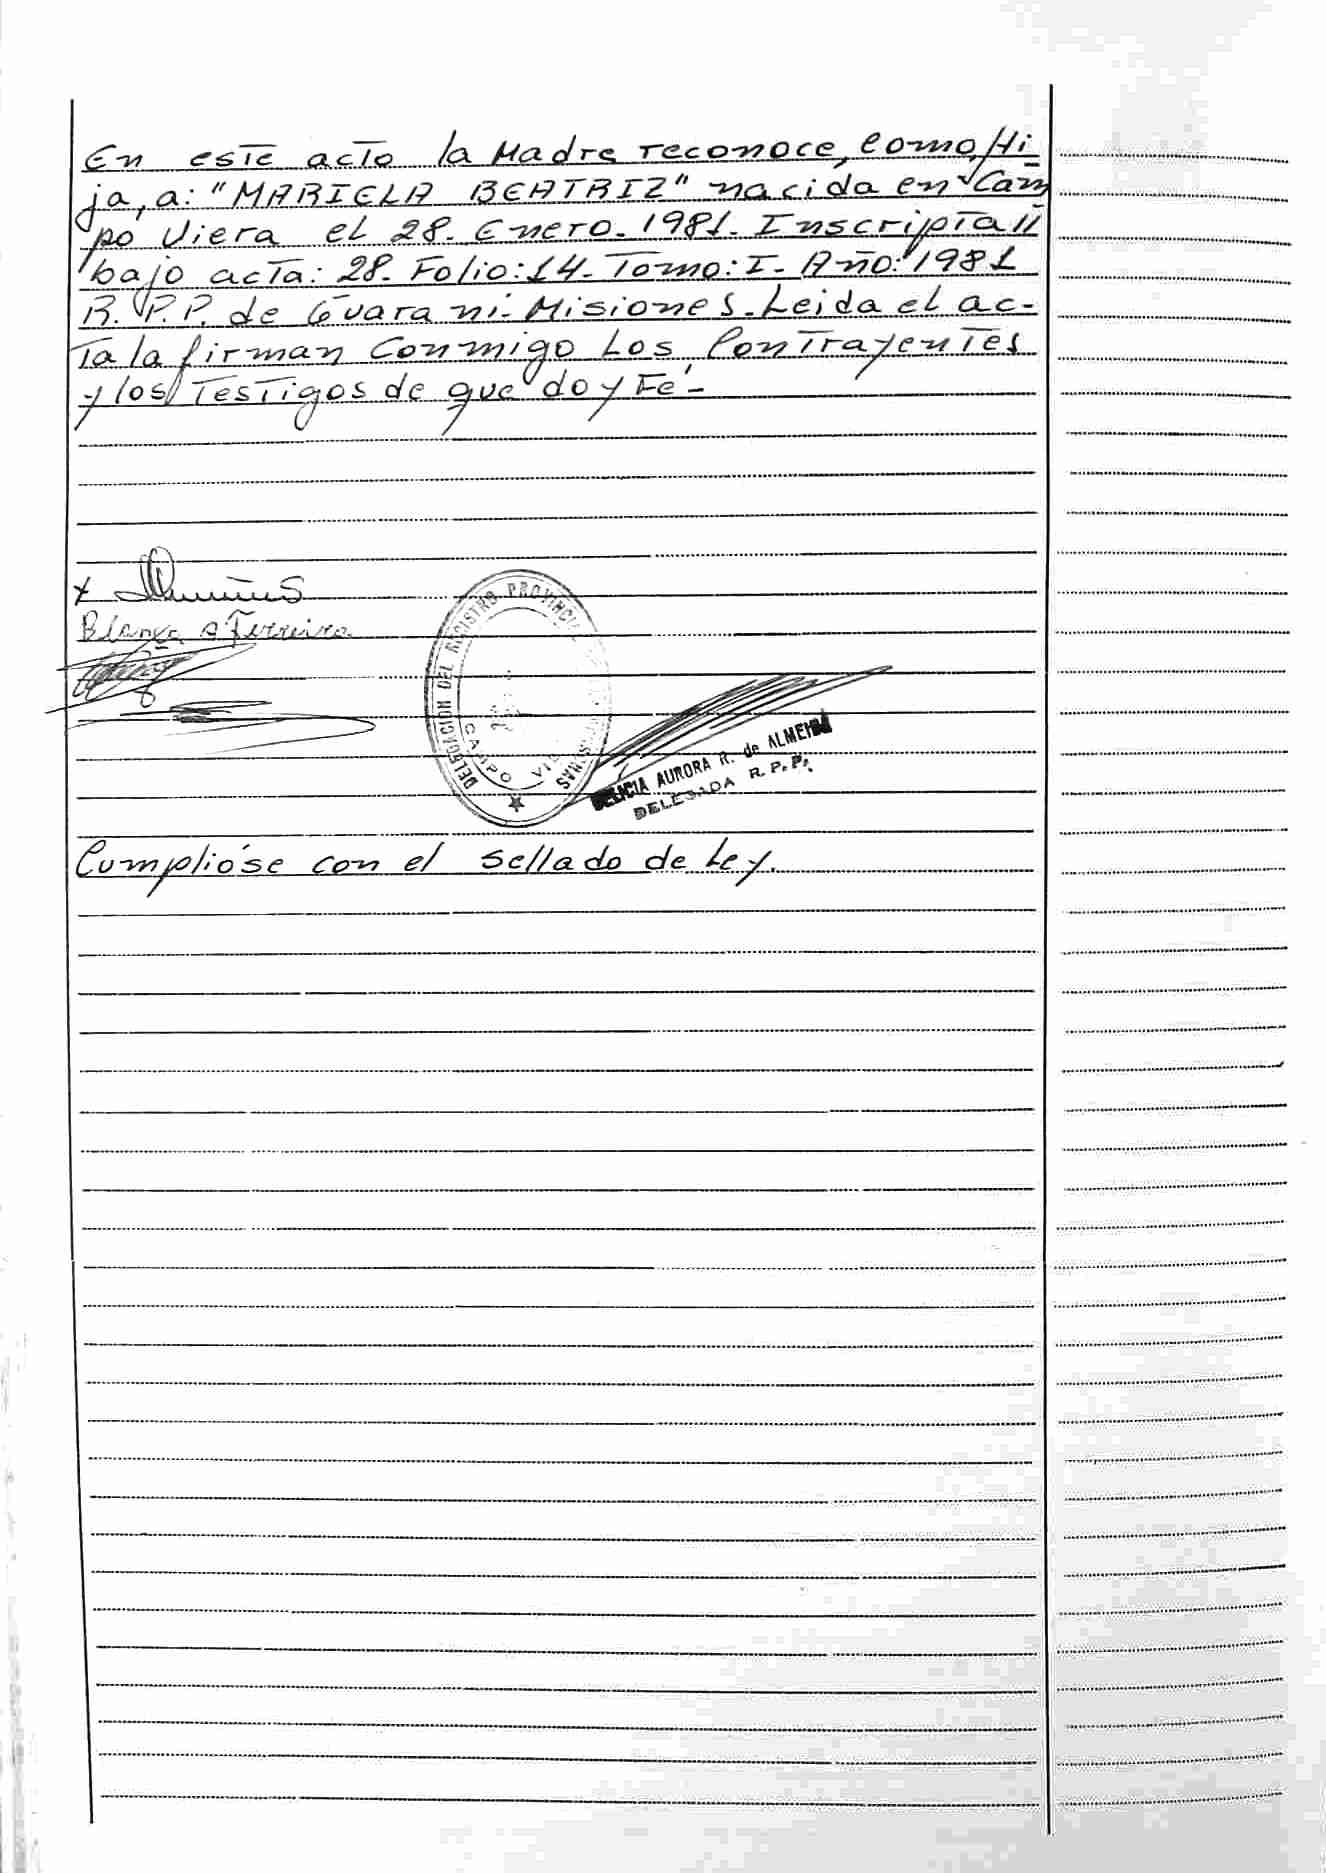 En este acto la Madre reconoce, como Hi
ja, a: "MARIELA BEATRIZ" nacida en Cam
po Viera el 28. Enero. 1981. Inscripta //
bajo acta: 28. Folio: 14. Tomo: I. Año: 1981
R. P. P. de Guarani. Misiones. Leida el ac-
ta la firman Conmigo Los Contrayentes
y los Testigos de que doy Fé.-
Blanca A Ferreira
DELEGACION DEL REGISTRO PROVINCIAL
CAMPO
DELICIA AURORA R. de ALMEIDA
DELEGADA R. P. P.
Cumplióse con el sellado de Ley.